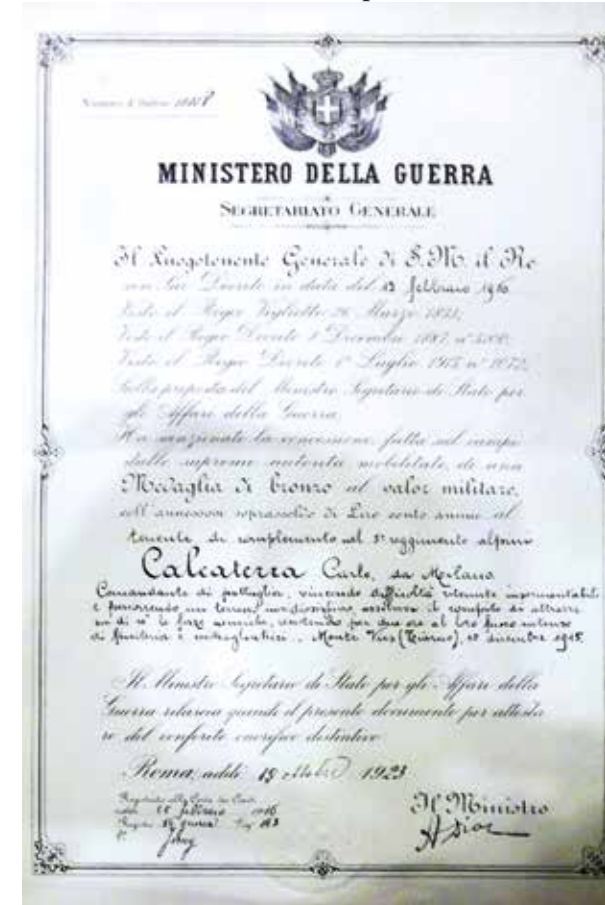 Numero d'Ordine
MINISTERO DELLA GUERRA
SEGRETARIATO GENERALE
Il Luogotenente Generale di S. M. il Re
con Suo Decreto in data del 13 febbraio 1916
Visto il Regio Viglietto 26 Marzo 1833;
Visto il Regio Decreto 8 Dicembre 1887, n°
Visto il Regio Decreto 1° Luglio 1915 n° 1072;
Sulla proposta del Ministro Segretario di Stato per
gli Affari della Guerra;
Ha sanzionato la concessione, fatta sul campo
dalle supreme autorità mobilitate, di una
Medaglia di bronzo al valor militare,
coll'annessovi soprassoldo di Lire cento annue al
tenente di complemento nel 5° reggimento alpini
Calcaterra Carlo, da Milano
Comandante di pattuglia, vincendo difficoltà ritenute insormontabili
e percorrendo un terreno assolveva il compito di attrarre
su di sé le forze nemiche, resistendo per due ore al loro fuoco intenso
di fucileria e mitragliatrici. Monte Vies (Tiarno), dicembre 1915.
Il Ministro Segretario di Stato per gli Affari della
Guerra rilascia quindi il presente documento per attesta
re del conferito onorifico distintivo.
Roma, addì 19 ottobre 1923
Registrato alla Corte dei Conti
addì febbraio 1916
Registro guerra Fog° 163
Il Ministro
A Diaz